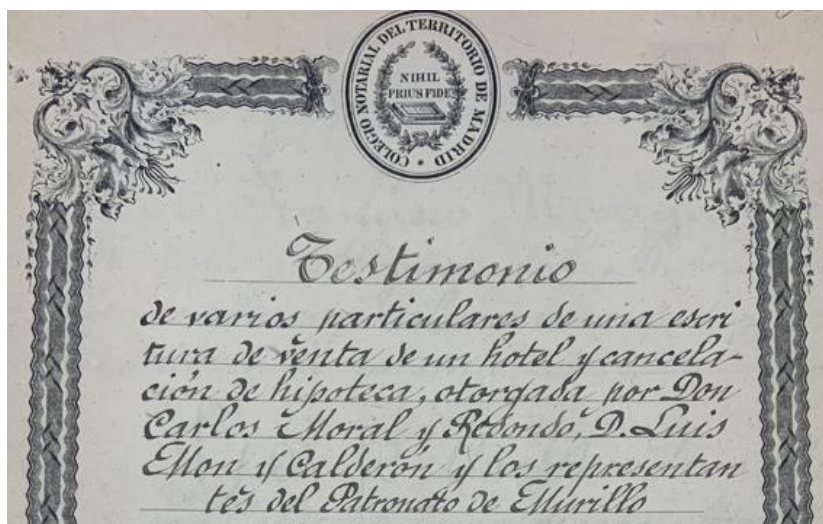 COLEGIO NOTARIAL DEL TERRITORIO DE MADRID
NIHIL
PRIUS FIDE
Testimonio
de varios particulares de una escri
tura de venta de un hotel y cancela-
ción de hipoteca, otorgada por Don
Carlos Moral y Redondo, D. Luis
Mon y Calderón y los representan
tes del Patronato de Murillo